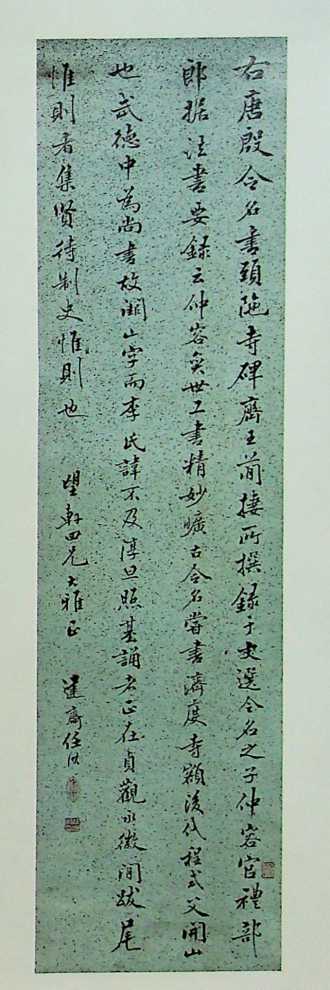 右唐殷令名書頭陁寺碑齊王簡棲所撰録于文選令名之子仲容官禮部
郎据法書要録云仲容奕世工書精妙曠古令名嘗書濟度寺額後代程式父開山
也武德中為尚書故淵山字而李氏諱不及淳旦照基誦者正在貞觀永徽間跋尾
惟則者集賢待制史惟則也
望軒四兄大雅正
任